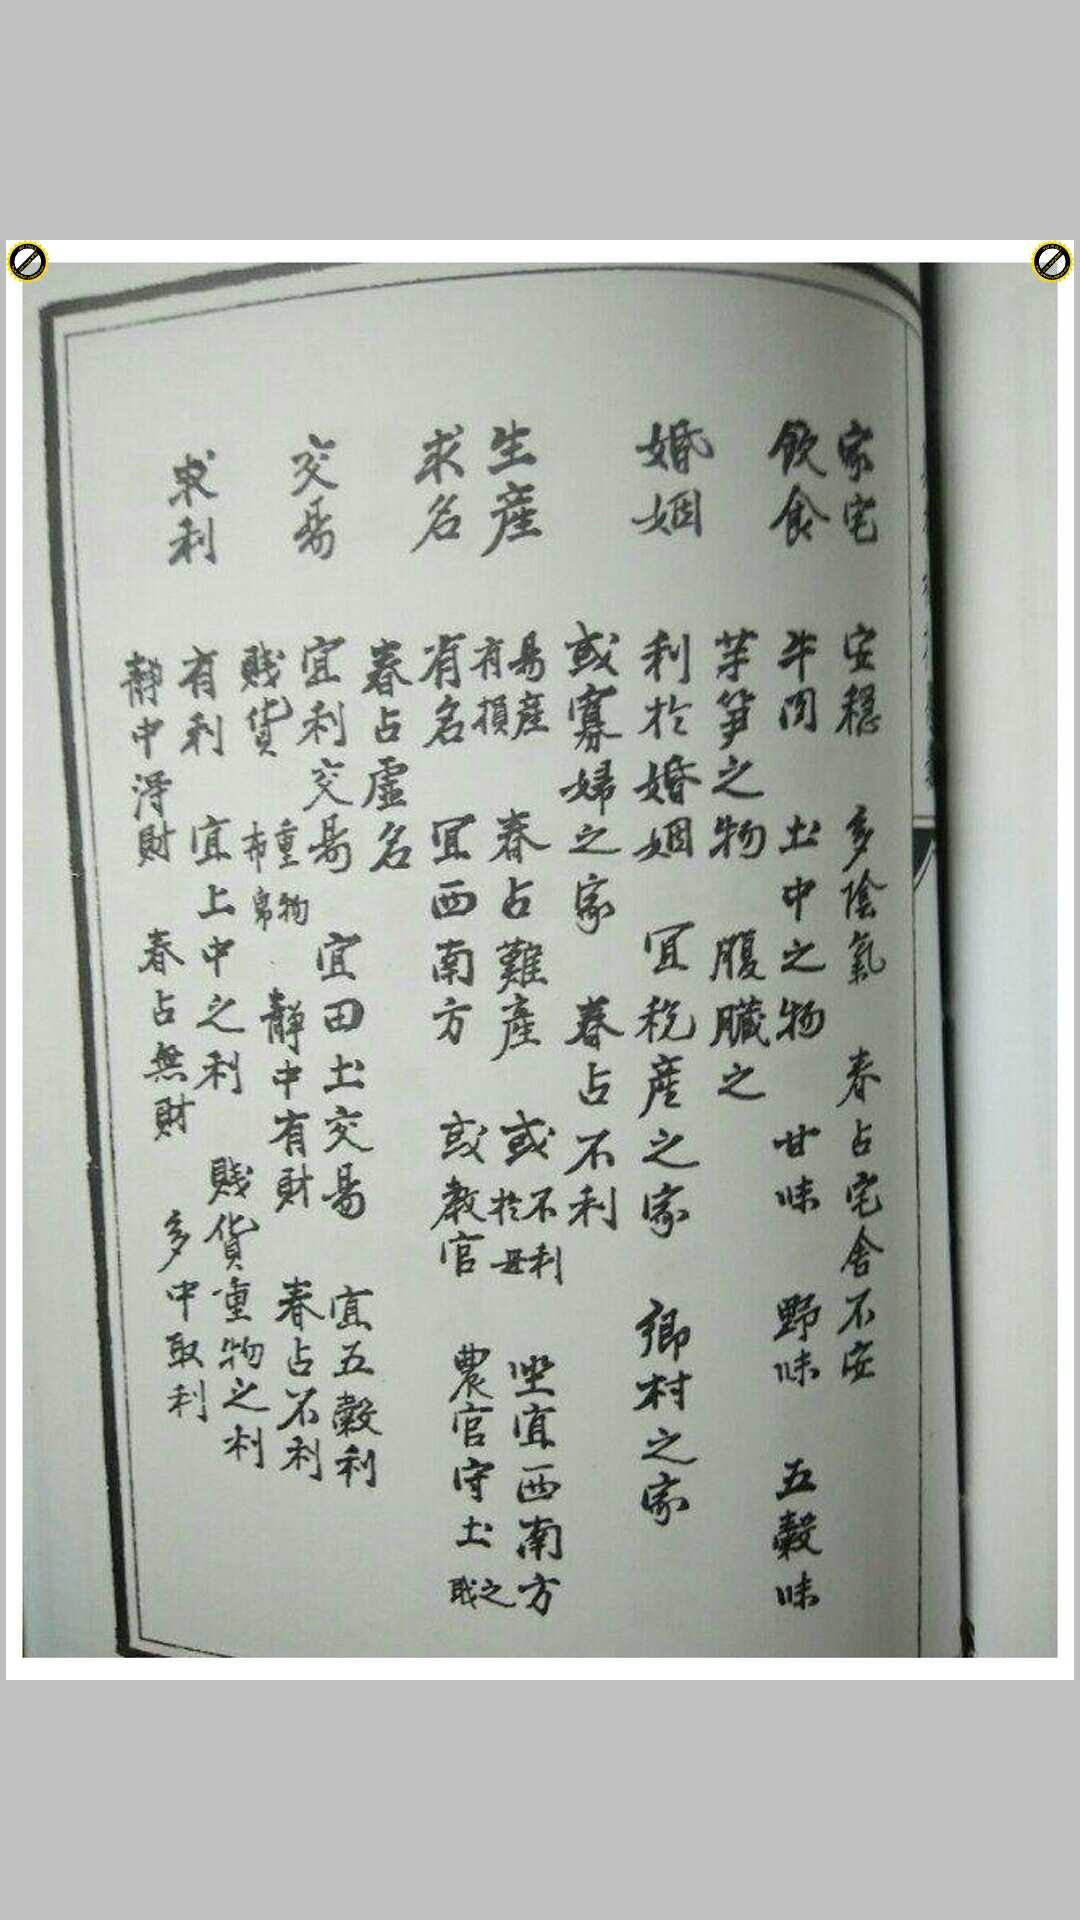 家宅　安穩　多陰氣　春占宅舍不安
飲食　牛肉　土中之物　甘味　野味　五穀味
芋笋之物　腹臟之
婚姻　利於婚姻　宜稅產之家　鄉村之家
或寡婦之家　春占不利
生產　易產有損　春占難產　或不利於母　坐宜西南方
求名　有名　宜西南方　或教官　農官守土之职
春占虛名
交易　宜利交易　宜田土交易　宜五穀利
賤貨　重物布帛　靜中有財　春占不利
求利　有利　宜土中之利　賤貨重物之利
靜中淂財　春占無財　多中取利